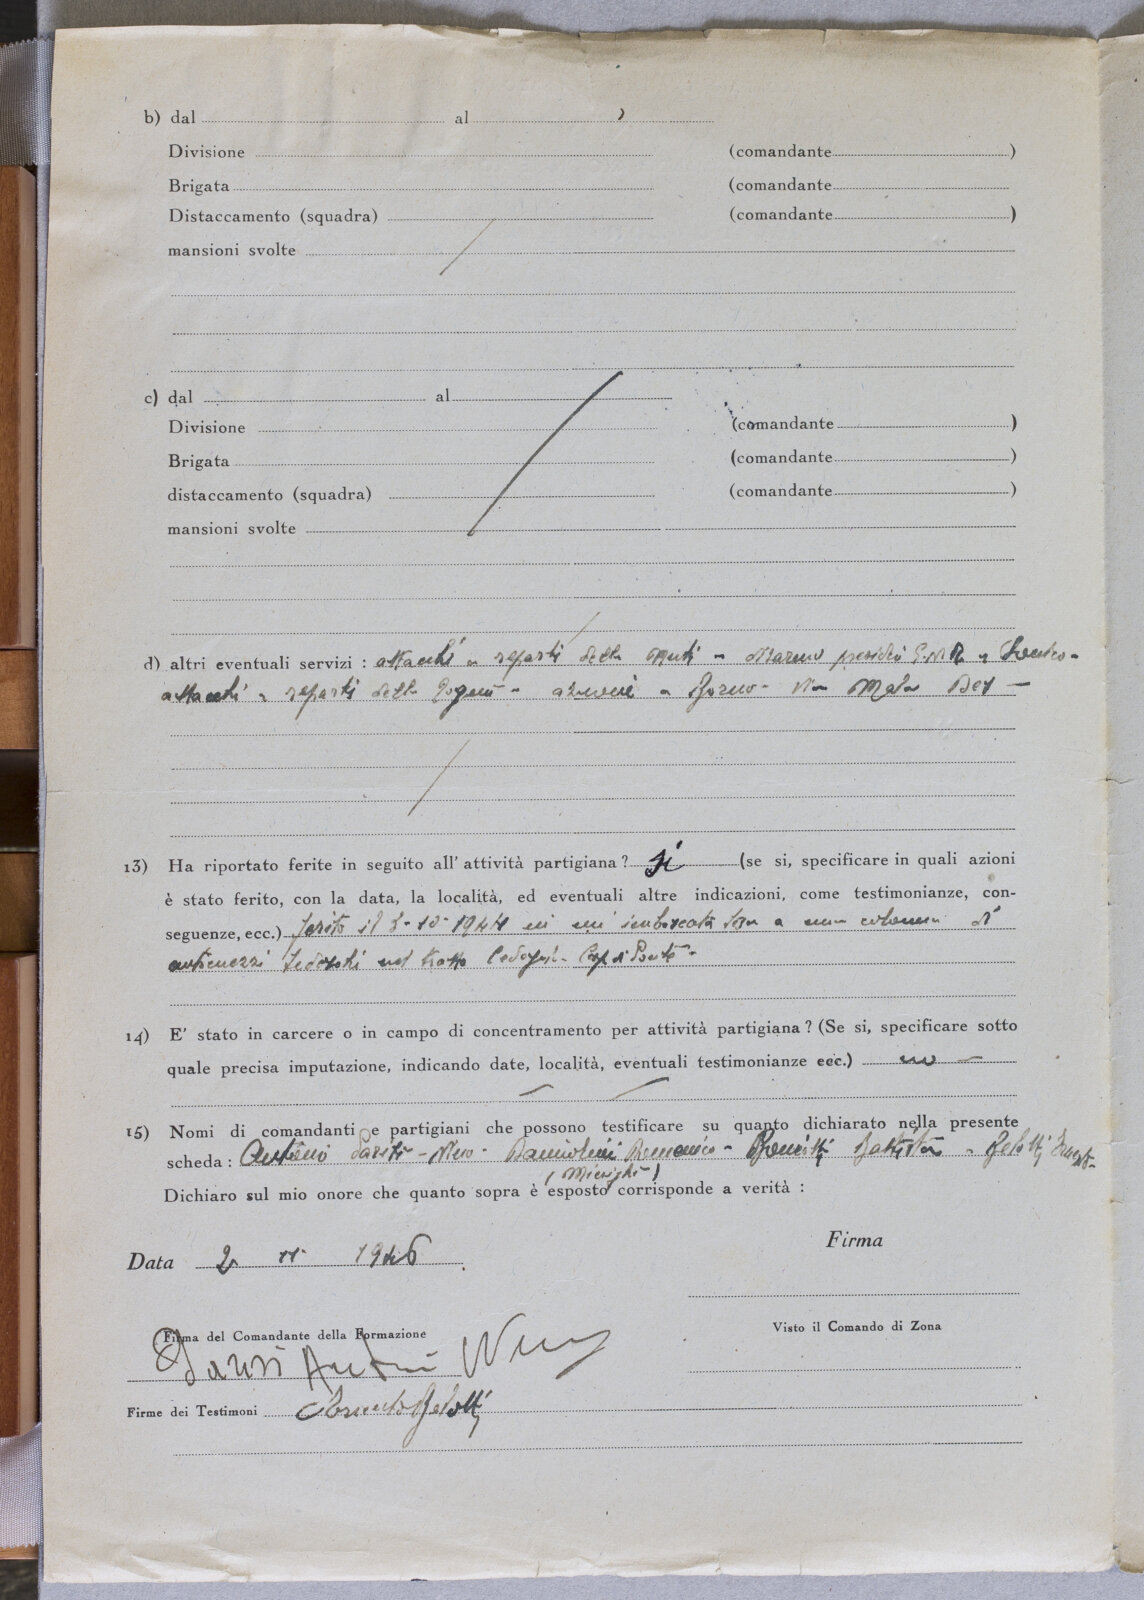 b) dal al
Divisione (comandante )
Brigata (comandante
Distaccamento (squadra) (comandante )
mansioni svolte
c) dal al
Divisione (comandante )
Brigata (comandante )
distaccamento (squadra) (comandante )
mansioni svolte
d) altri eventuali servizi : attacchi a reparti della Muti - presidi G.N.R.
attacchi a reparti della - azioni a Borno -
13) Ha riportato ferite in seguito all' attività partigiana ? si (se si, specificare in quali azioni
è stato ferito, con la data, la località, ed eventuali altre indicazioni, come testimonianze, con-
seguenze, ecc.) ferito il 10 - 1944 in un' imboscata tesa a una colonna di
automezzi tedeschi nel tratto Cedegolo - Capo di Ponte -
14) E' stato in carcere o in campo di concentramento per attività partigiana ? (Se si, specificare sotto
quale precisa imputazione, indicando date, località, eventuali testimonianze ecc.) no -
15) Nomi di comandanti e partigiani che possono testificare su quanto dichiarato nella presente
scheda : Antonio - Nino - Domenico - Battista -
Dichiaro sul mio onore che quanto sopra è esposto corrisponde a verità :
Firma
Data 2 11 1946
Firma del Comandante della Formazione
Visto il Comando di Zona
Firme dei Testimoni